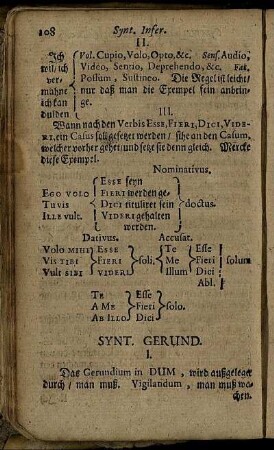 108 Synt. Infer.
II.
Ich Vol. Cupio, Volo, Opto, &c. Sens. Audio,
wil/ich Video, Sentio, Deprehendo, &c. Fat.
ver- Possum, Sustineo. Die Regel ist leicht/
mahne nur daß man die Exempel fein anbrin-
ich kan ge.
dulden
III.
Wann nach den Verbis ESSE, FIERI, DICI, VIDE-
RI, ein Casus soll gesetzet werden / sihe an den Casum,
welcher vorher gehet/ und setze sie denn gleich. Mercke
diese Exempel.
Nominativus.
ESSE seyn
EGO VOLO FIERI werden ge-
TU VIS DICI tituliret sein doctus.
ILLE vult. VIDERI gehalten
werden.
Dativus. Accusat.
VOLO MIHI ESSE Te Esse
VIS TIBI FIERI soli, Me Fieri solum
VULT SIBI VIDERI Illum Dici
Abl.
TE Esse
A ME Fieri solo.
AB ILLO Dici
SYNT. GERUND.
I.
Das Gerundium in DUM, wird außgeleget
durch / man muß. Vigilandum, man muß wa-
chen.